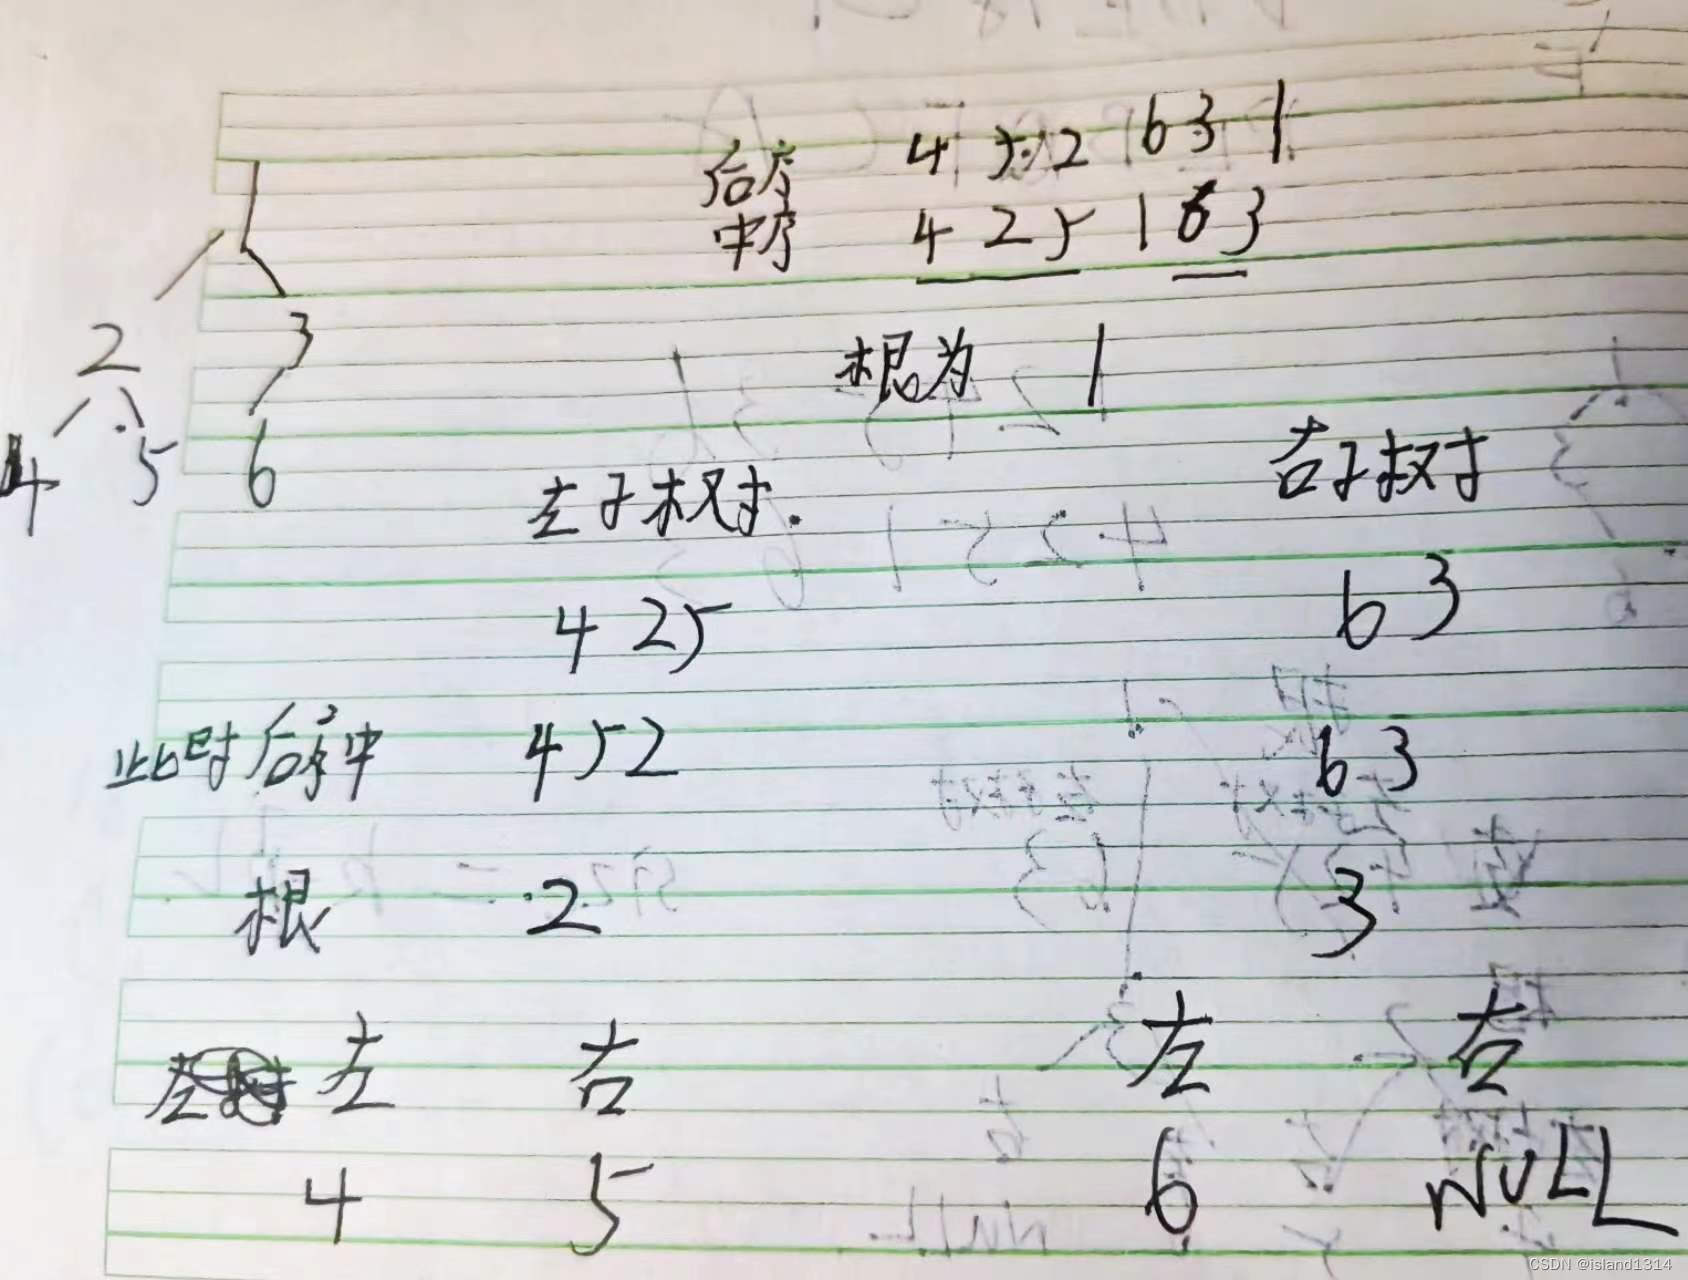 后序 4 5 2 6 3 1
中序 4 2 5 1 6 3
1
2 3
4 5 6
根为 1
左子树. 右子树
4 2 5 6 3
此时后序中 4 5 2 6 3
根 2 3
左 右 左 右
4 5 6 NULL
CSDN @island1314